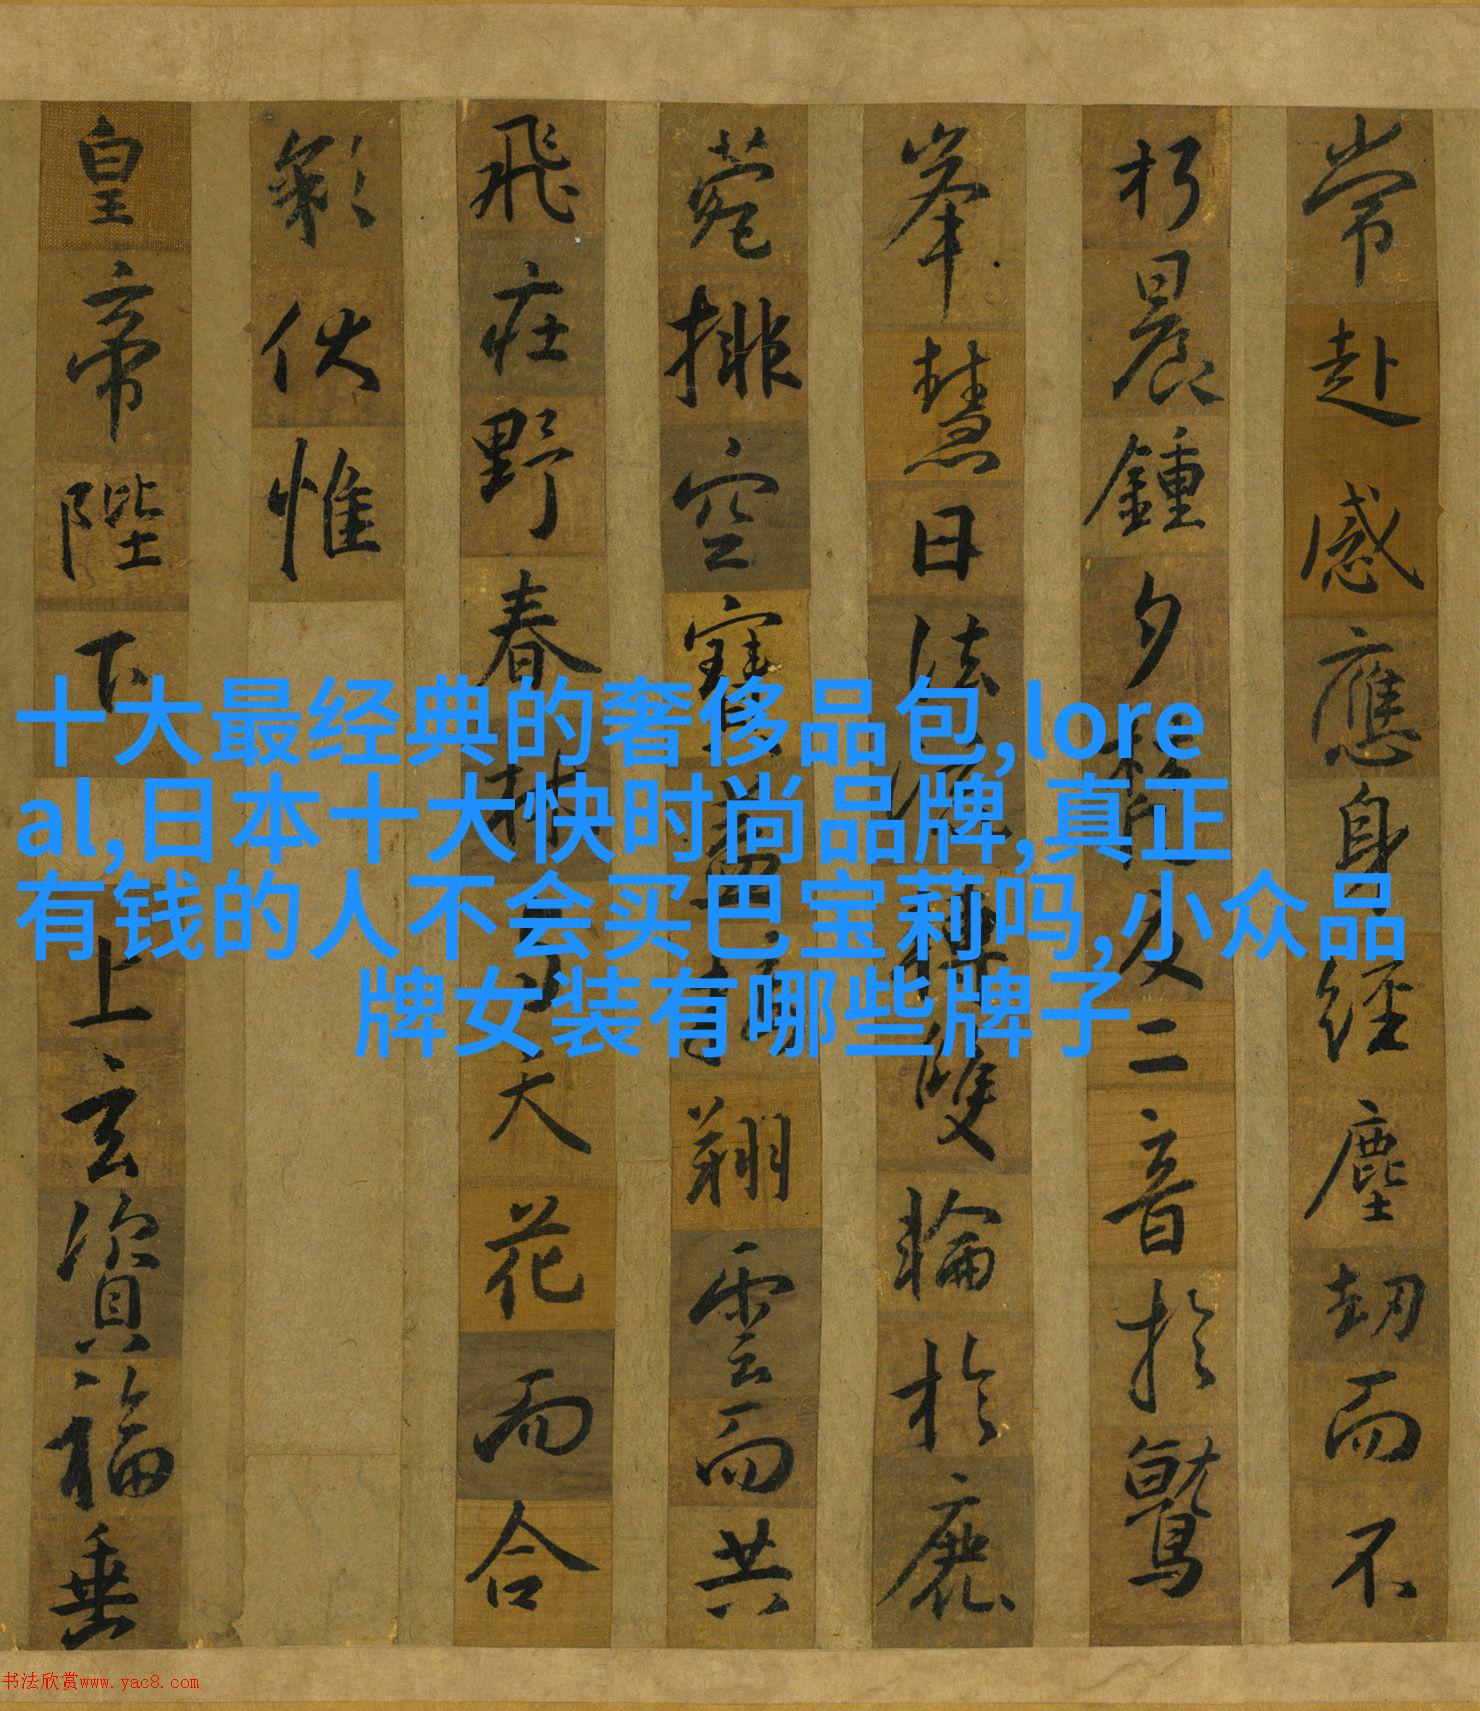 常赴感應身經塵劫而不
朽晨鍾夕梵交二音於鷲
峯慧日法流轉雙輪於鹿
菀排空寶蓋接翔雲而共
飛莊野春林與天花而合
彩伏惟
皇帝陛下上玄資福垂
十大最经典的奢侈品包,lore
al,日本十大快时尚品牌,真正
有钱的人不会买巴宝莉吗,小众品
牌女装有哪些牌子
书法欣赏www.yac8.com